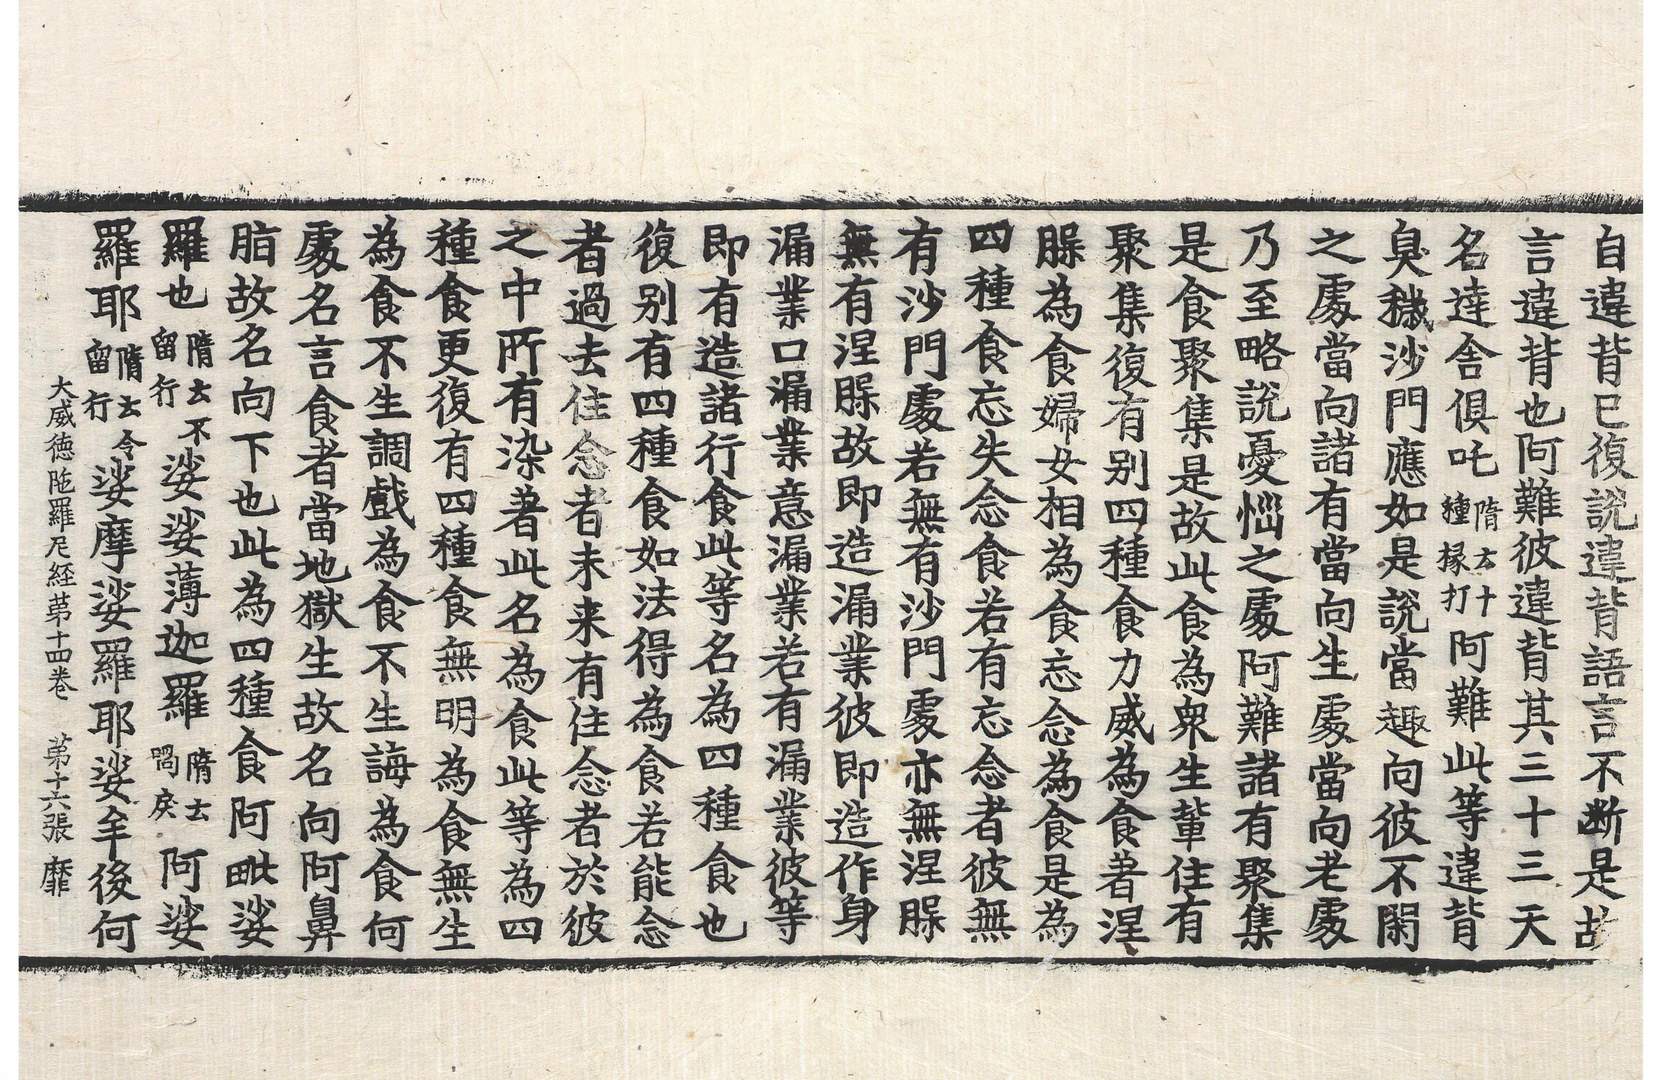 自違背已復說違背語言不断是故
言違背也阿難彼違背其三十三天
名達舍俱吒隋云十種掾打阿難此等違背
臭穢沙門應如是說當趣向彼不閑
之處當向諸有當向生處當向老處
乃至略說憂惱之處阿難諸有聚集
是食聚集是故此食為衆生輩住有
聚集復有別四種食力威為食著涅
脲為食婦女相為食忘念為食是為
四種食忘失念食若有忘念者彼無
有沙門處若無有沙門處亦無涅脲
無有涅脲故即造漏業彼即造作身
漏業口漏業意漏業若有漏業彼等
即有造諸行食此等名為四種食也
復别有四種食如法得為食若能念
者過去住念者未来有住念者於彼
之中所有染著此名為食此等為四
種食更復有四種食無明為食無生
為食不生調戲為食不生誨為食何
處名言食者當地獄生故名向阿鼻
脂故名向下也此為四種食阿毗娑
羅也隋云不留行娑娑薄迦羅隋云啚戾阿娑
羅耶隋云令留行娑摩娑羅耶娑牟後何
大威德陁羅尼経苐十四卷 第十六張 靡